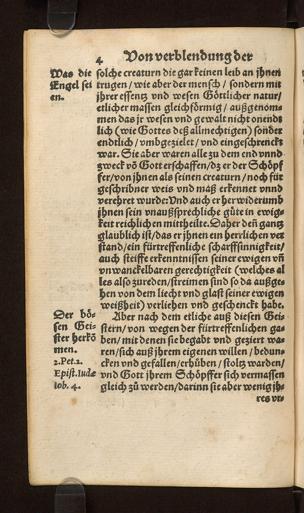 4 Von verblendung der
Was die
Engel sei
en.
solche creaturn die gar keinen leib an jhnen
trugen / wie aber der mensch / sondern mit
jhrer essentz vnd wesen Göttlicher natur /
etlicher massen gleichförmig / außgenom-
men das jr wesen vnd gewalt nicht onendt
lich (wie Gottes deß allmechtigen) sonder
endtlich / vmbgezielet / vnd eingeschrenckt
war. Sie aber waren alle zu dem end vnnd
zweck võ Gott erschaffen / dz er der Schöpf
fer / von jhnen als seinen creaturn / noch für
geschribner weis vnd maß erkennet vnnd
verehret wurde: Vnd auch er herwiderumb
jhnen sein vnaußsprechliche güte in ewig-
keit reichlichen mittheilte. Daher deñ gantz
glaublich ist / das er jhnen ein herrlichen ver
stand / ein fürtreffenliche scharffsinnigkeit /
auch steiffe erkenntnissen seiner ewigen vñ
vnwanckelbaren gerechtigkeit (welches al
les also zureden / streimen sind so da außge-
hen von dem liecht vnd glast seiner ewigen
weißheit) verliehen vnd geschenckt habe.
Der bö-
sen Gei-
ster herkö
men.
2. Pet. 2.
Epist. Iudæ
Iob. 4.
Aber nach dem etliche auß diesen Gei-
stern / von wegen der fürtreffenlichen ga-
ben / mit denen sie begabt vnd geziert wa-
ren / sich auß jhrem eigenen willen / bedun-
cken vnd gefallen / erhüben / stoltz warden /
vnd Gott jhrem Schöpffer sich vermassen
gleich zů werden / darinn sie aber wenig jh-
res vr-